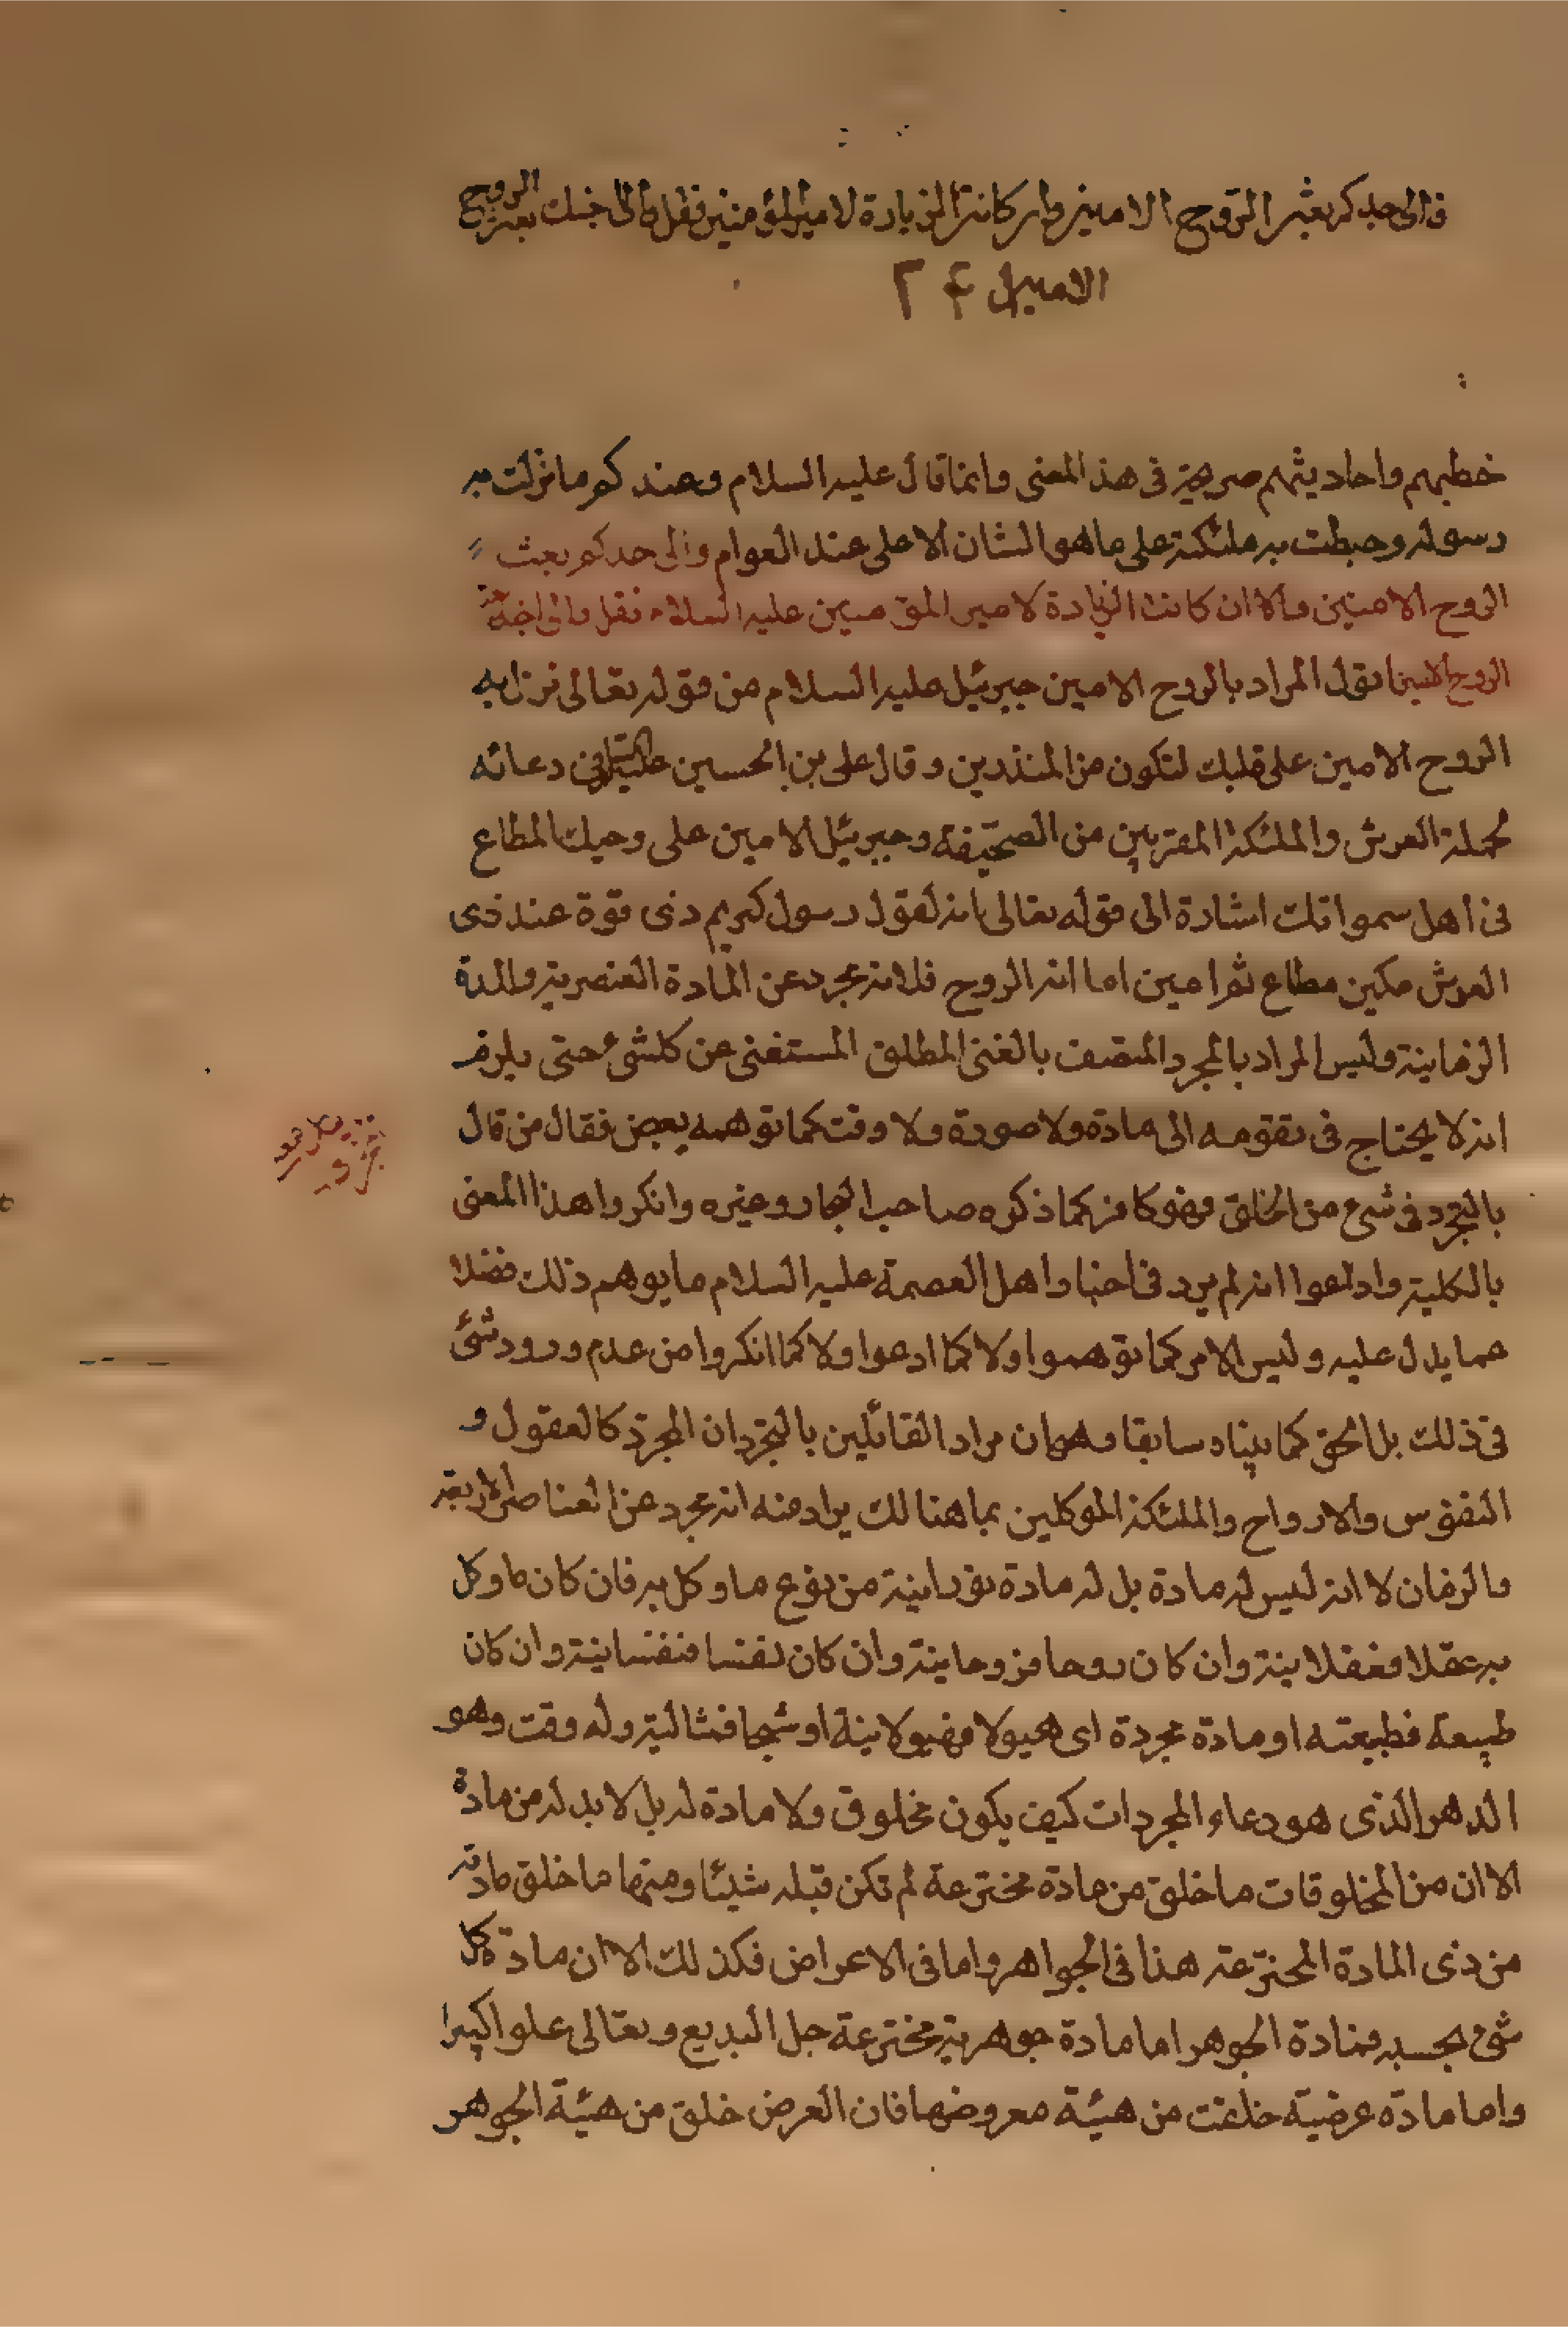 والى جدكم بعث الروح الامين وان كانت الزيارة لامير المؤمنين فقل والى اخيك بعث الروح
الامين ٢٤
خطبهم واحاديثهم صريحة فى هذ المعنى وانما قال عليه السلام وعندكم ما نزلت به
رسوله وهبطت به ملئكته على ما هو الشان الاعلى عند العوام والى جدكم بعث
الروح الامنين والا ان كانت الزيادة لامير المؤمنين عليه السلام فقل والى اخيك بعث
الروح الامين اقول المراد بالروح الامين جبرئيل عليه السلام من قوله تعالى نزل به
الروح الامين على قلبك لتكون من المنذرين وقال على بن الحسين عليهما السلام فى دعائه
لحملة العرش والملئكة المقربين من الصحيفة وجبرئيل الامين على وحيك المطاع
فى اهل سمواتك اشارة الى قوله تعالى انه لقول رسول كريم ذى قوة عند ذى
العرش مكين مطاع ثم امين اما انه الروح فلانه مجرد عن المادة العنصرية والمدة
الزمانية وليس المراد بالمجرد المتصف بالغنى المطلق المستغنى عن كلشئ حتى يلزم
انه لا يحتاج فى تقومه الى مادة ولا صورة ولا وقت كما توهمه بعض فقال من قال
بالتجرد فى شئ من الخلق فهو كافر كما ذكره صاحب البحار وغيره وانكروا هذا المعنى
بالكلية وادعوا انه لم يرد فى اخبار اهل العصمة عليه السلام ما يوهم ذلك فضلا
عما يدل عليه وليس الامر كما توهموا ولا كما ادعوا ولا كما انكروا من عدم ورود شئ
فى ذلك بل الحق كما بيناه سابقا وهو ان مراد القائلين بالتجرد ان المجرد كالعقول و
النفوس والارواح والملئكة الموكلين بما هنالك يراد منه انه مجرد عن العناصر الاربعة
والزمان لا انه ليس له مادة بل له مادة نورانية من نوع ما وكل به فان كان ما وكل
به عقلا فعقلانية وان كان روحا فروحانية وان كان نفسا فنفسانية وان كان
طبيعة فطبيعته او مادة مجردة اى هيولا فهيولانية او شبحا فمثالية وله وقت وهو
الدهر الذى هو وعاء المجردات كيف يكون مخلوق ولا مادة له بل لا بد له من مادة
الا ان من المخلوقات ما خلق من مادة مخترعة لم تكن قبله شيئا ومنها ما خلق مادته
من ذى المادة المخترعة هذا فى الجواهر واما فى الاعراض فكذلك الا ان مادة كل
شئ بحسبه فمادة الجوهر اما مادة جوهرية مخترعة جل البديع وتعالى علوا كبيرا
واما مادة عرضية خلقت من هيئة معروضها فان العرض خلق من هيئة الجوهر